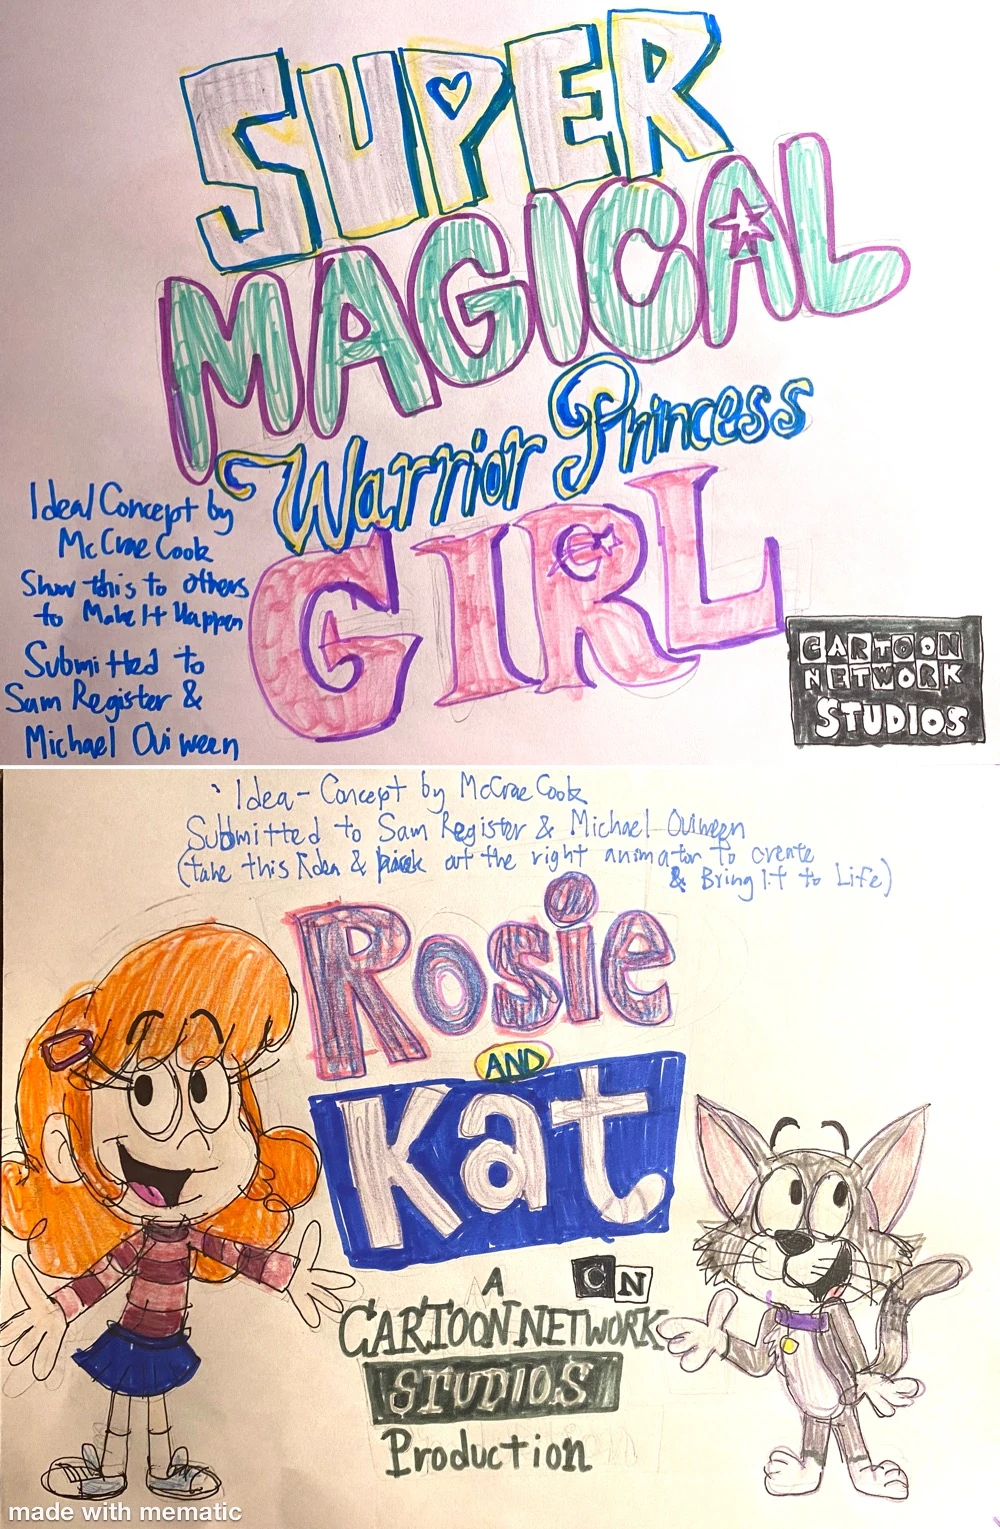 SUPER
MAGICAL
Warrior Princess
GIRL
Ideal Concept by
McCrae Cook
Show this to others
to Make It Happen
Submitted to
Sam Register &
Michael Ouiween
CARTOON
NETWORK
STUDIOS
Idea- Concept by McCrae Cook
Submitted to Sam Register & Michael Ouiween
(take this Idea & pick out the right animator to create
& Bring It to Life)
Rosie
AND
Kat
A
CN
CARTOON NETWORK
STUDIOS
Production
made with mematic